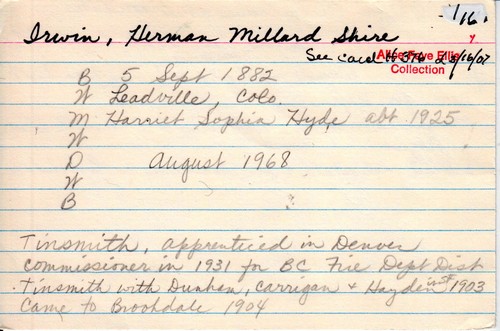 1/16
Irwin, Herman Millard Shire
See card # 374
Alice Faye Ellis
Collection
B 5 Sept 1882
W Leadville, Colo.
M Harriet Sophia Hyde abt 1925
W
D August 1968
W
B ?
Tinsmith, apprenticed in Denver
commissioner in 1931 for BC Fire Dept Dist
Tinsmith with Dunham, Carrigan & Hayden in SF 1903
Came to Brookdale 1904